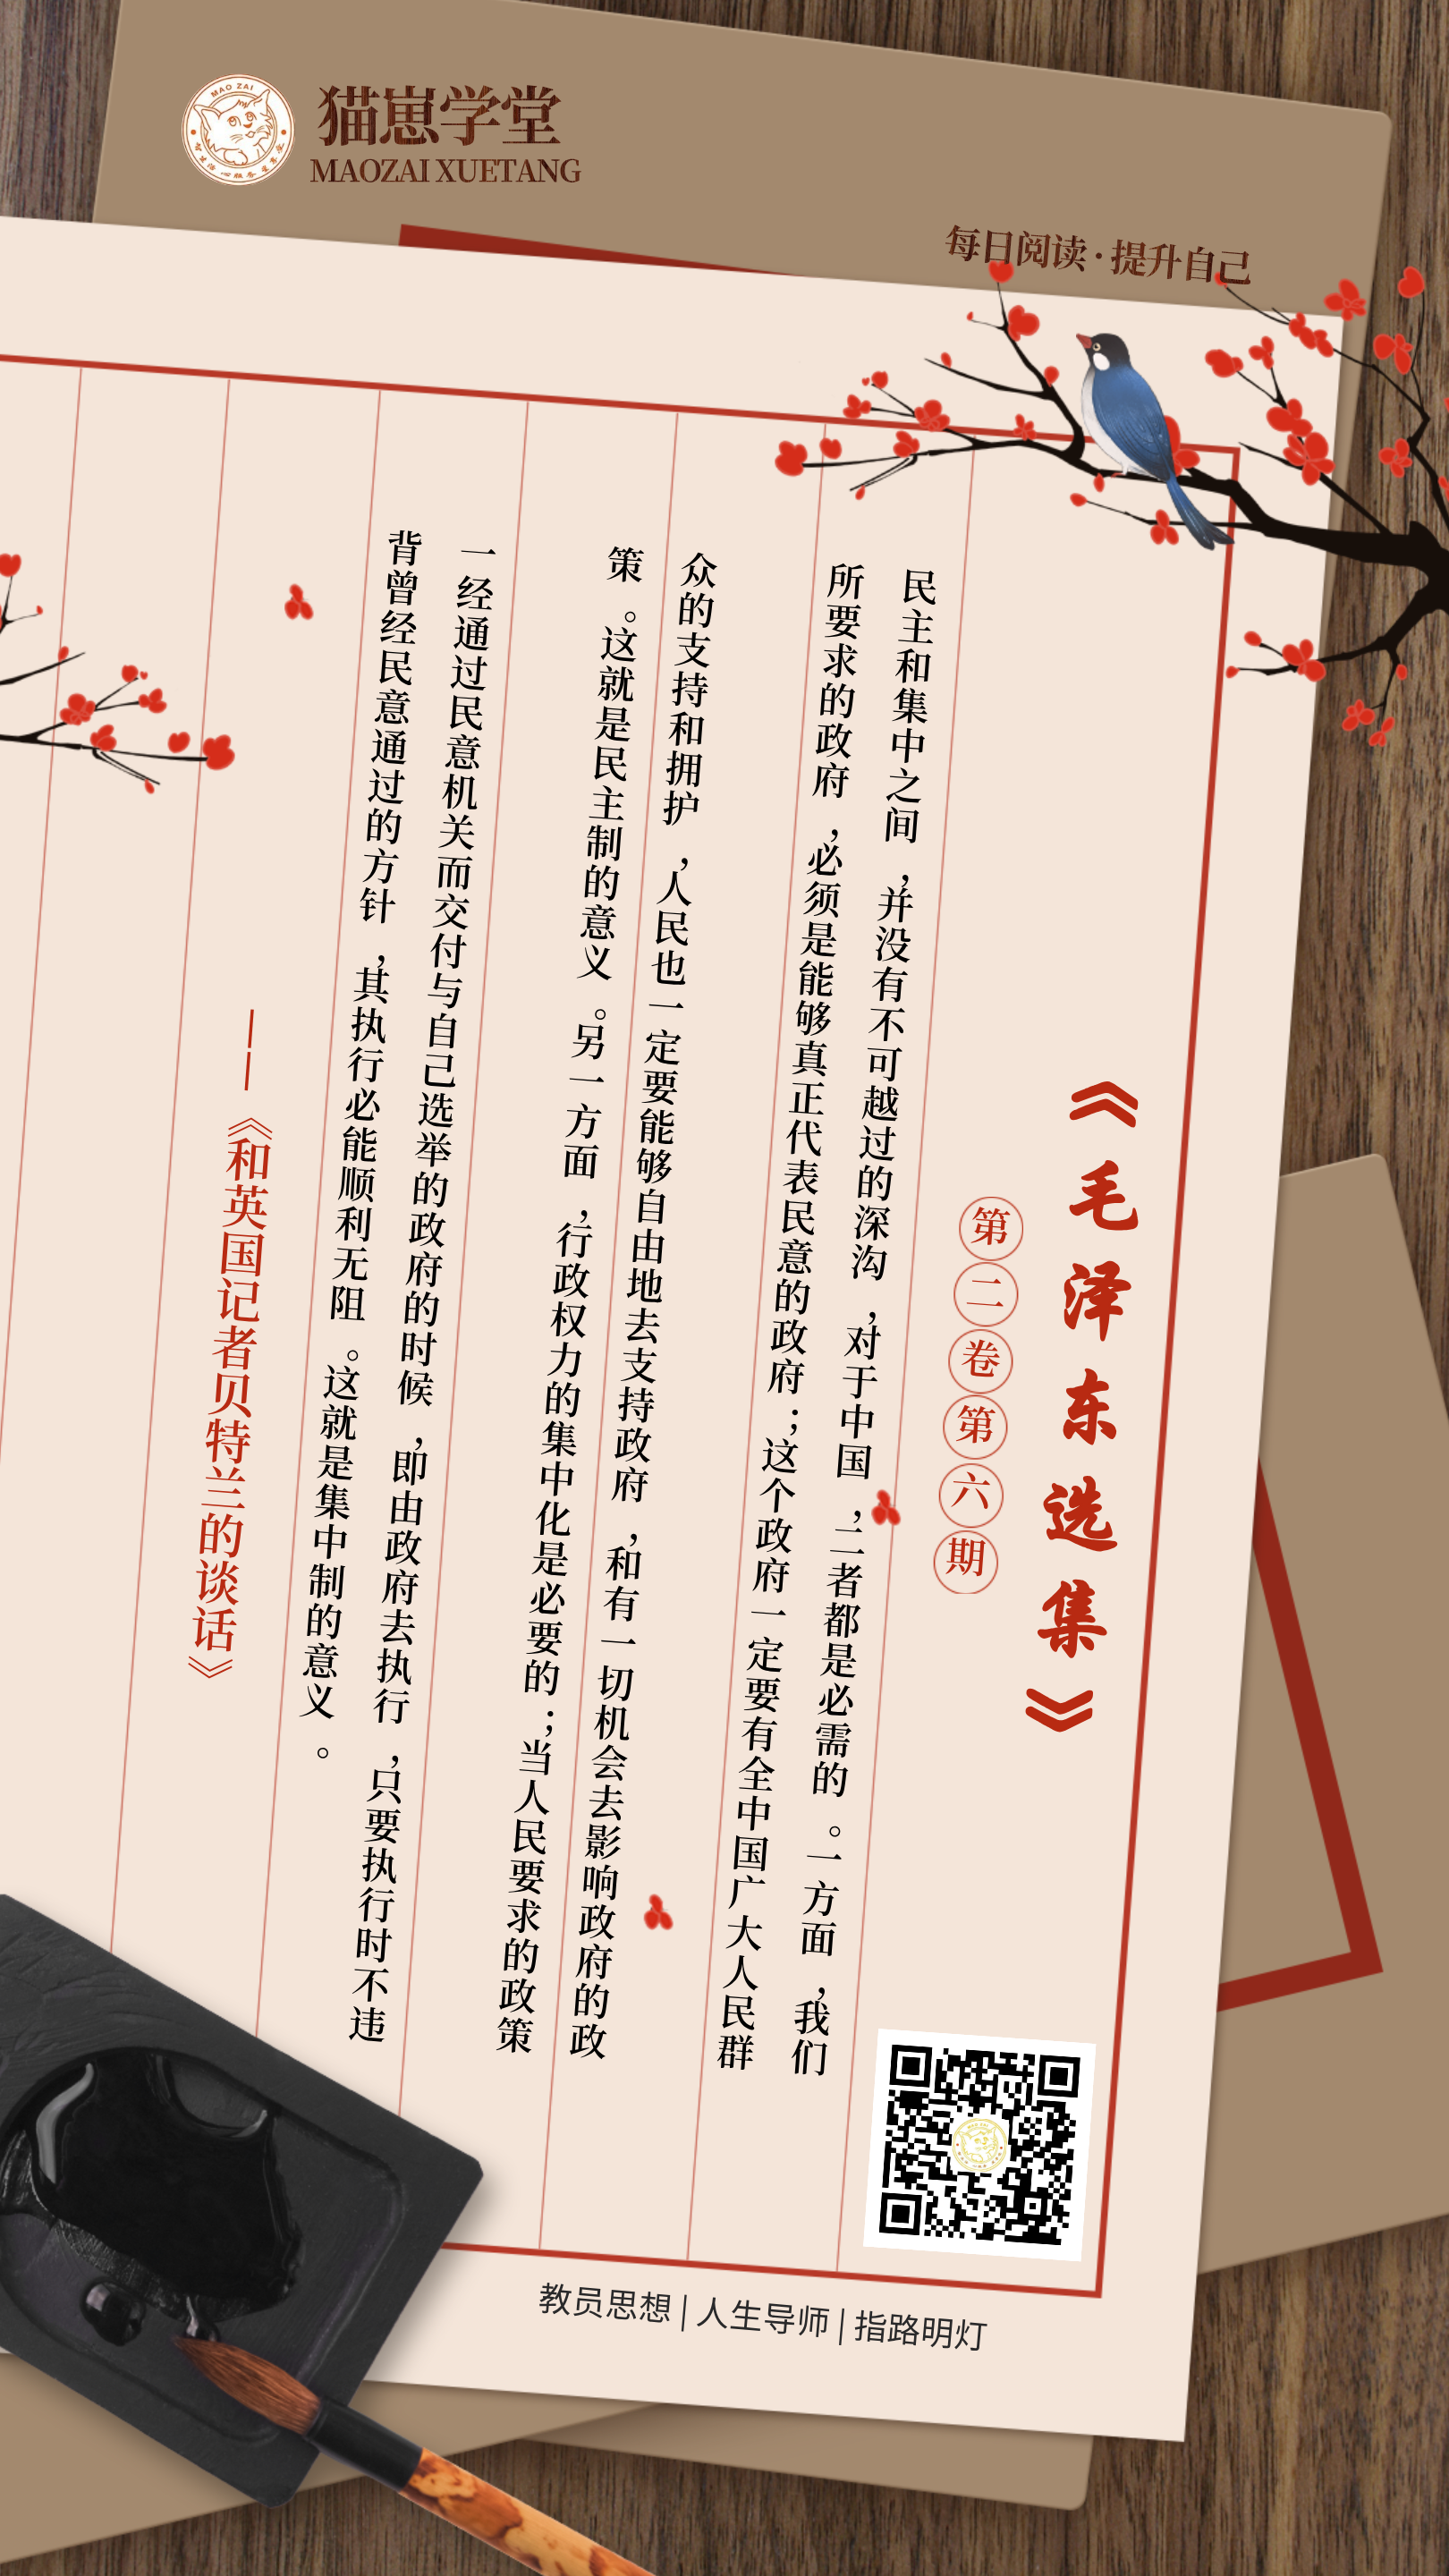 猫崽学堂
MAOZAI XUETANG
MAO ZAI
每日阅读·提升自己
《毛泽东选集》
第二卷第六期
民主和集中之间，并没有不可越过的深沟，对于中国，二者都是必需的。一方面，我们
所要求的政府，必须是能够真正代表民意的政府；这个政府一定要有全中国广大人民群
众的支持和拥护，人民也一定要能够自由地去支持政府，和有一切机会去影响政府的政
策。这就是民主制的意义。另一方面，行政权力的集中化是必要的；当人民要求的政策
一经通过民意机关而交付与自己选举的政府的时候，即由政府去执行，只要执行时不违
背曾经民意通过的方针，其执行必能顺利无阻。这就是集中制的意义。
——《和英国记者贝特兰的谈话》
教员思想|人生导师|指路明灯